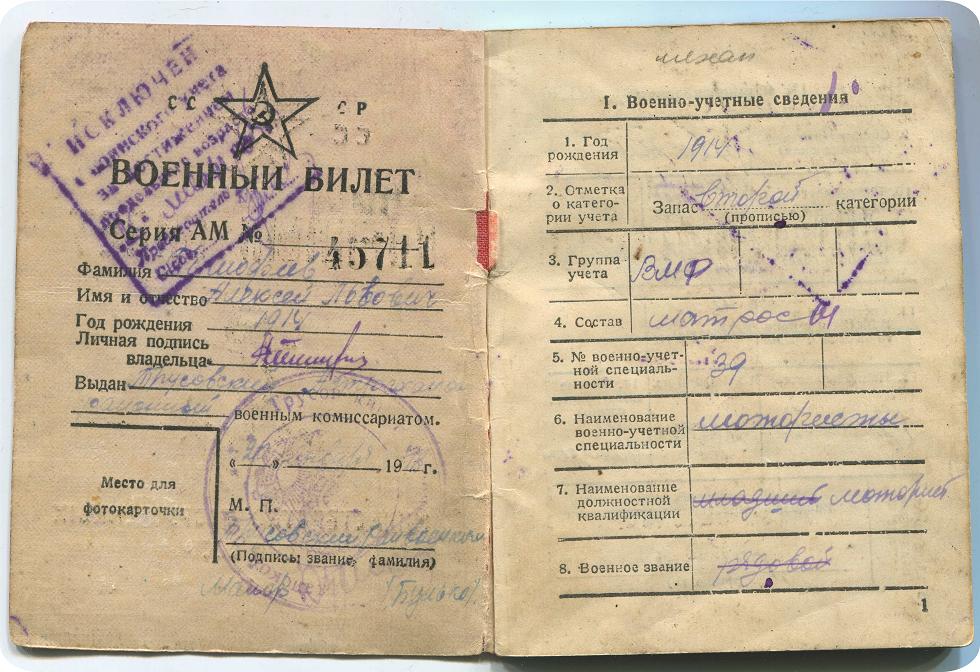 ИСКЛЮЧЕН
с воинского учета
за достижением
предельного возраста
СС СР
ВОЕННЫЙ БИЛЕТ
Серия АМ № 45711
Фамилия
Имя и отчество Алексей Львович
Год рождения 1914
Личная подпись
владельца
Выдан Трусовским
военным комиссариатом.
« » 19 г.
Место для
фотокарточки
М. П.
(Подпись, звание, фамилия)
Майор (Булько)
механ
I. Военно-учетные сведения
1. Год
рождения 1914
2. Отметка
о катего-
рии учета Запас второй категории
(прописью)
3. Группа
учета ВМФ
4. Состав матросы
5. № военно-учет-
ной специаль-
ности 39
6. Наименование
военно-учетной
специальности мотористы
7. Наименование
должностной
квалификации младший моторист
8. Военное звание рядовой
1